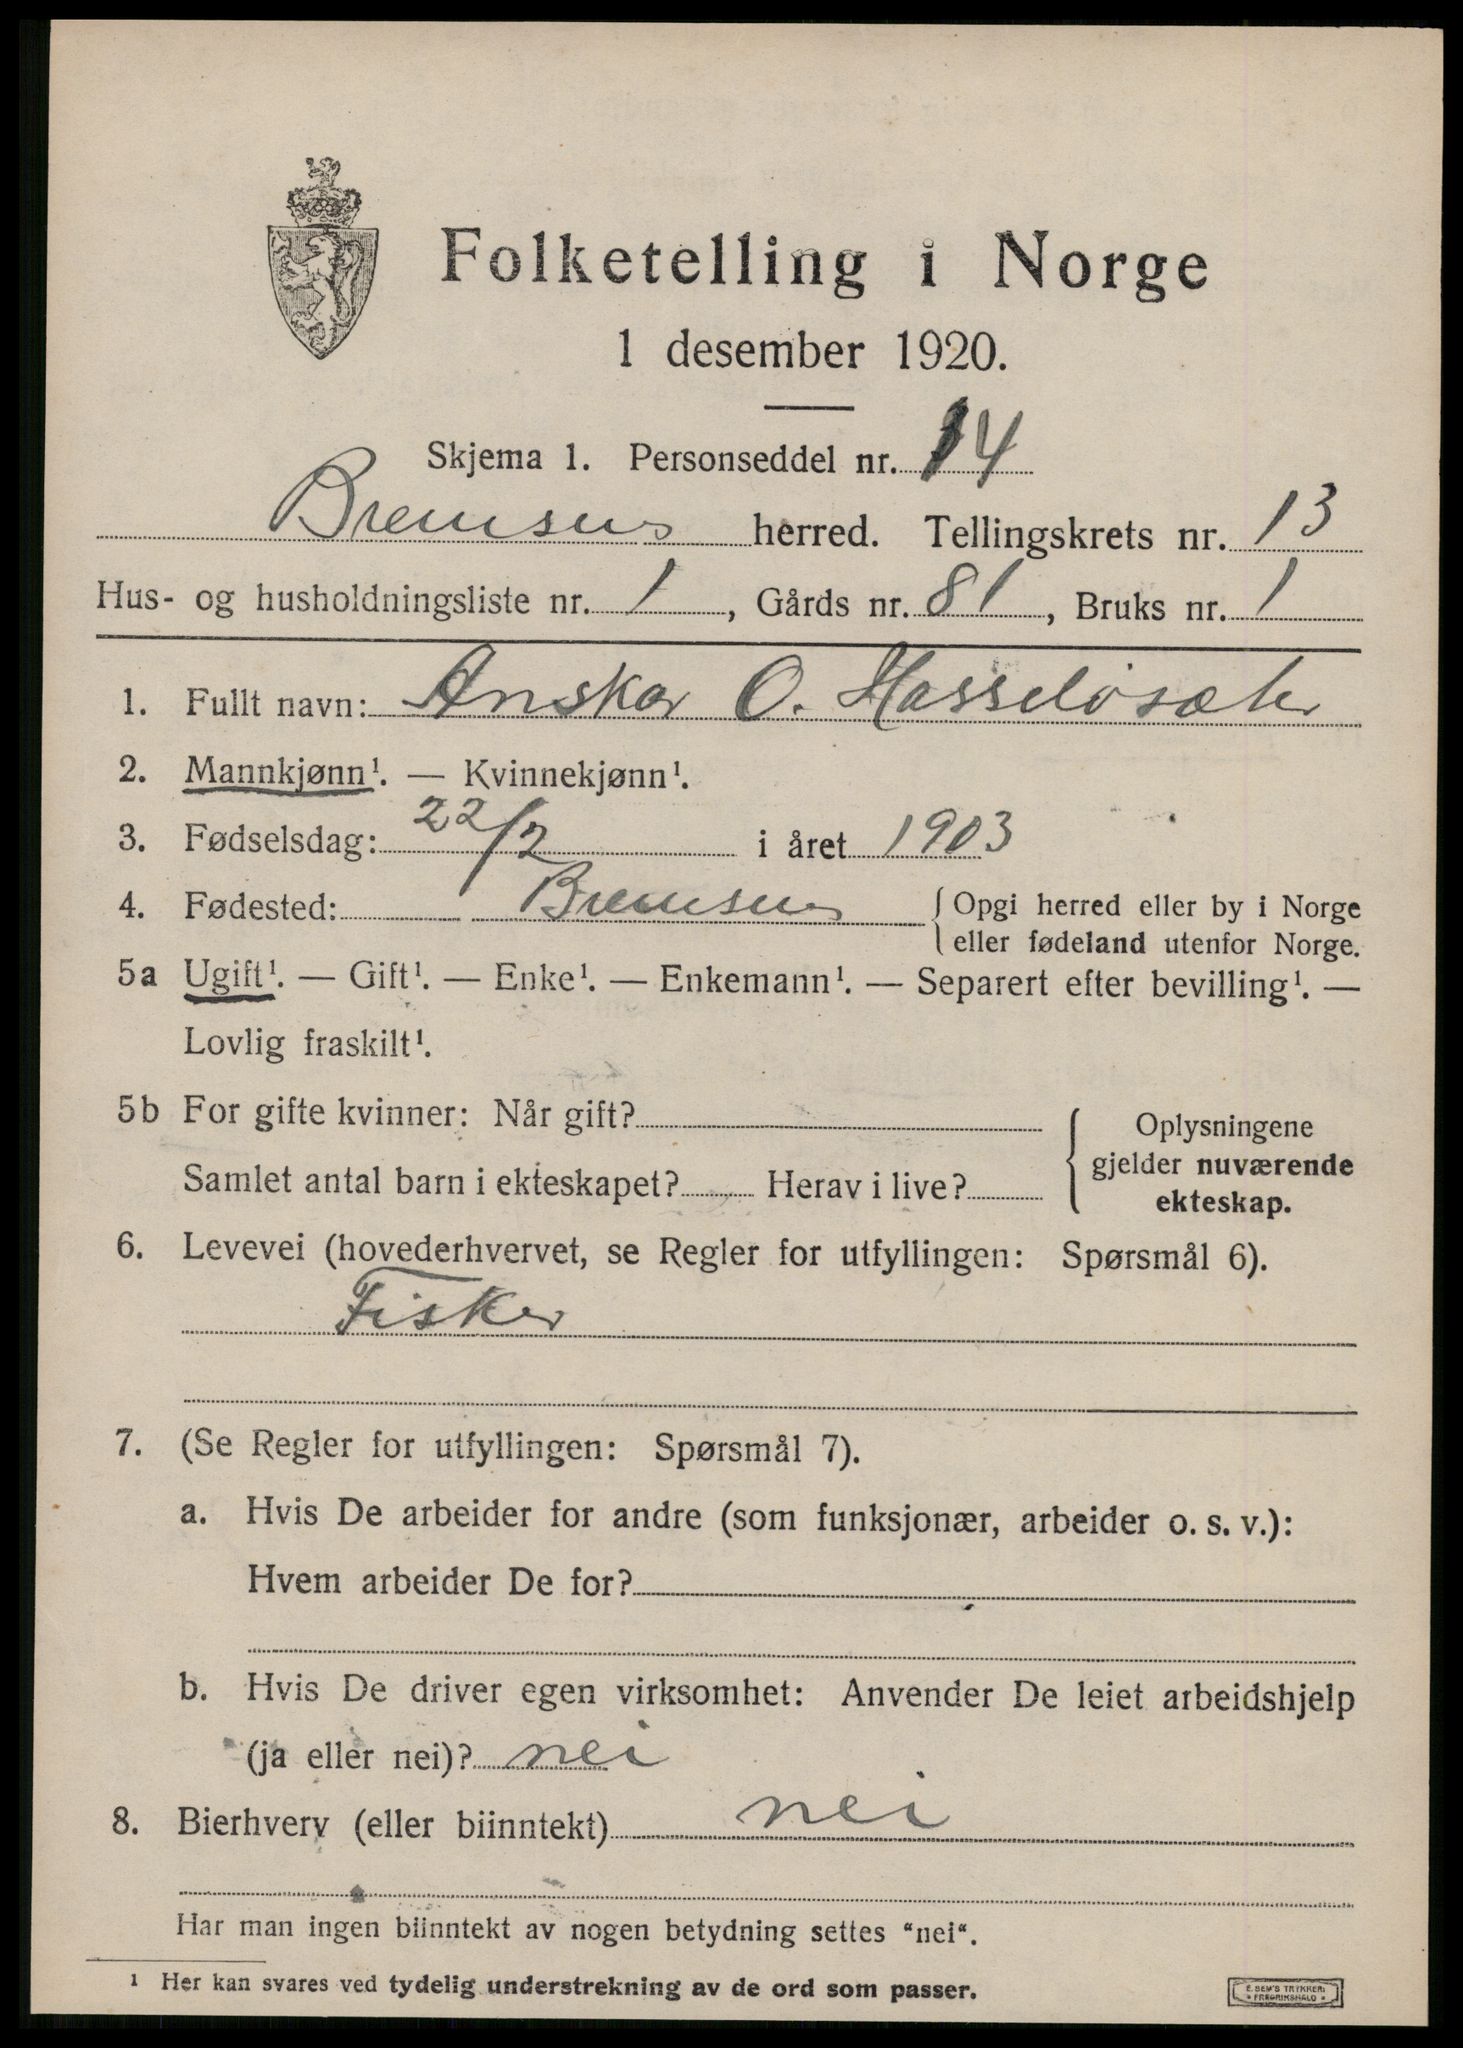 Folketelling i Norge
1 desember 1920.
Skjema 1. Personseddel nr. 14
Bremsnes herred. Tellingskrets nr. 13
Hus- og husholdningsliste nr. 1, Gårds nr. 81, Bruks nr. 1
1. Fullt navn: Anskar O. Hasseløsæter
2. Mannkjønn¹. — Kvinnekjønn¹.
3. Fødselsdag: 22/2 i året 1903
4. Fødested: Bremsnes { Opgi herred eller by i Norge
eller fødeland utenfor Norge.
5a Ugift¹. — Gift¹. — Enke¹. — Enkemann¹. — Separert efter bevilling¹. —
Lovlig fraskilt¹.
5b For gifte kvinner: Når gift?
Samlet antal barn i ekteskapet? Herav i live?
{ Oplysningene
gjelder nuværende
ekteskap.
6. Levevei (hovederhvervet, se Regler for utfyllingen: Spørsmål 6).
Fisker
7. (Se Regler for utfyllingen: Spørsmål 7).
a. Hvis De arbeider for andre (som funksjonær, arbeider o. s. v.):
Hvem arbeider De for?
b. Hvis De driver egen virksomhet: Anvender De leiet arbeidshjelp
(ja eller nei)? nei
8. Bierhverv (eller biinntekt) nei
Har man ingen biinntekt av nogen betydning settes "nei".
1 Her kan svares ved tydelig understrekning av de ord som passer.
E. SEM'S TRYKKERI
* FREDRIKSHALD *